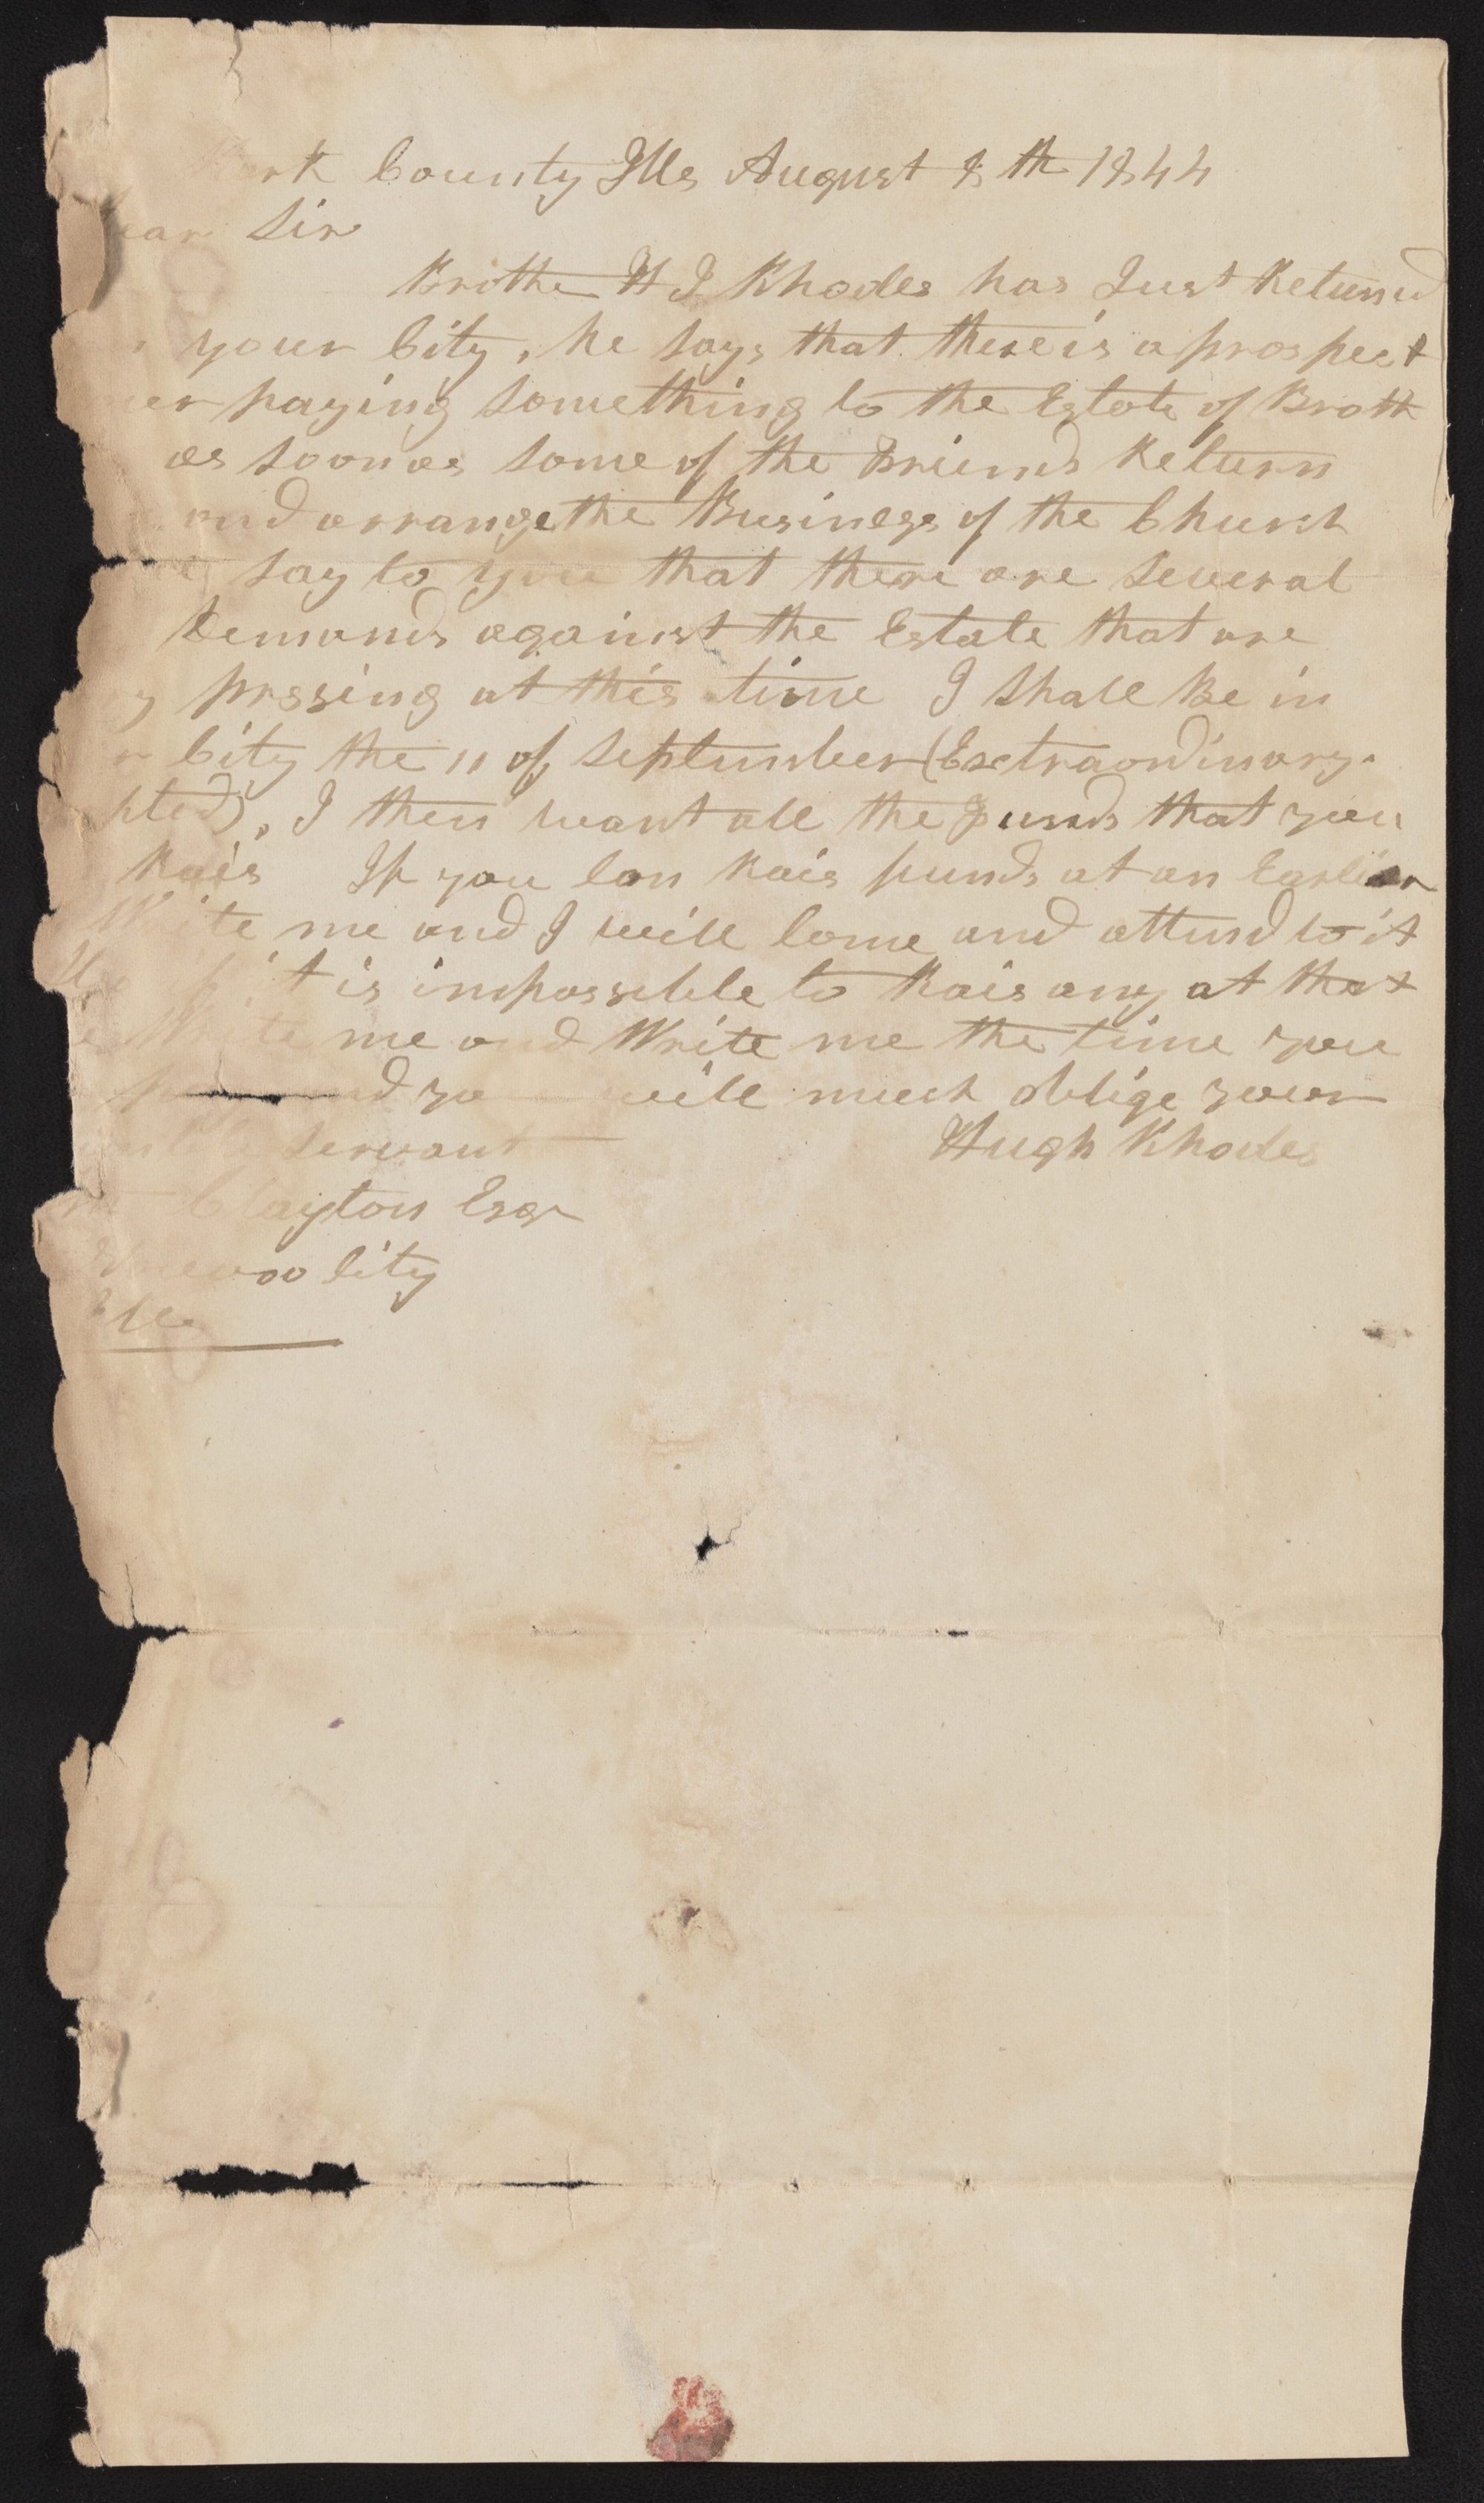 County Ills August 8th 1844
ear Sir
Brothe H J Rhodes has Just Returned
your City, he says that there is a prospect
er paying something to the Estate of Broth
as soon as some of the Briends Return
and arrange the Business of the Church
say to you that there are several
Demands against the Estate that are
y prssing at this time I shall Be in
r City the 11 of September (Exctraordinary
pted), I then want all the funds that you
Rais If you Can Rais funds at an Earlier
Write me and I will Come and attend to it
it is impossible to Rais any at that
Write me and Write me the time you
nd yo will much oblige your
servant Hugh Rhodes
Clayton Esqr
uvoo City
Ills